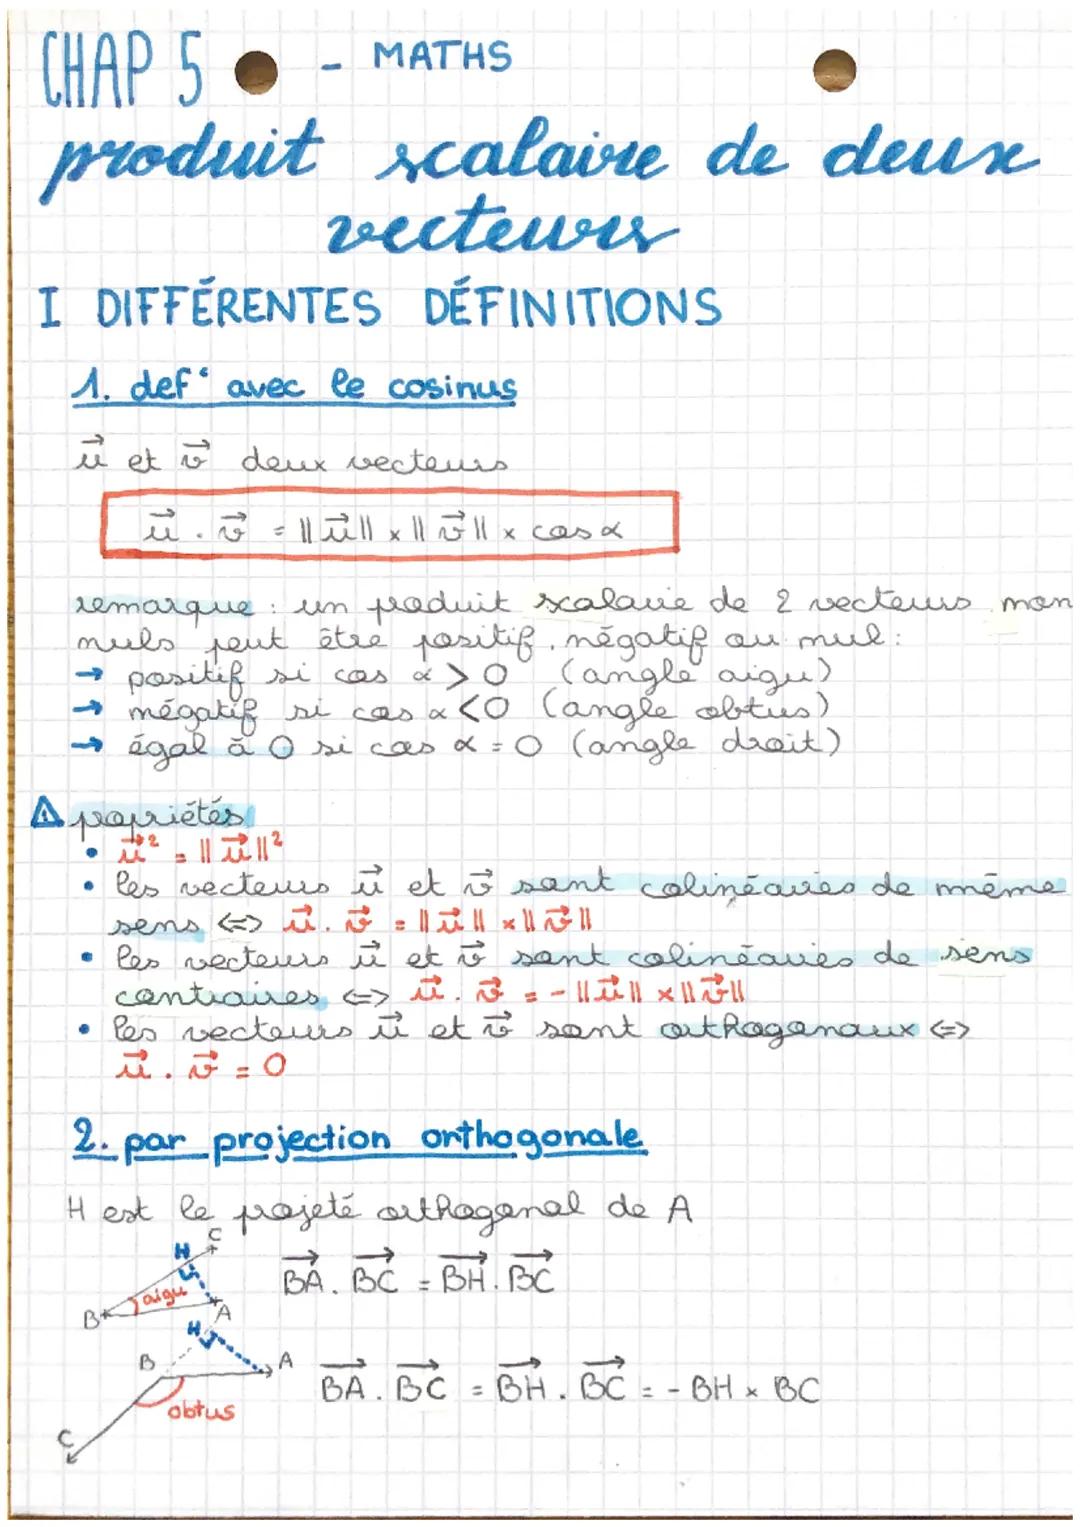 CHAP 5 - MATHS
produit scalaire de deux
vecteurs
I DIFFÉRENTES DÉFINITIONS
1. def° avec le cosinus
u⃗ et v⃗ deux vecteurs
u⃗ . v⃗ = ||u⃗|| × ||v⃗|| × cos α
remarque : un produit scalaire de 2 vecteurs non
nuls peut être positif, négatif ou nul :
→ positif si cos α > 0 (angle aigu)
→ négatif si cos α < 0 (angle obtus)
→ égal à 0 si cos α = 0 (angle droit)
⚠ popriétés
• u⃗² = ||u⃗||²
• les vecteurs u⃗ et v⃗ sont colinéaires de même
sens <=> u⃗ . v⃗ = ||u⃗|| × ||v⃗||
• les vecteurs u⃗ et v⃗ sont colinéaires de sens
contraires <=> u⃗ . v⃗ = - ||u⃗|| × ||v⃗||
• les vecteurs u⃗ et v⃗ sont orthogonaux <=>
u⃗ . v⃗ = 0
2. par projection orthogonale
H est le projeté orthogonal de A
H C
B aigu A
BA⃗ . BC⃗ = BH⃗ . BC⃗
H
B A
obtus
C
BA⃗ . BC⃗ = BH⃗ . BC⃗ = - BH × BC